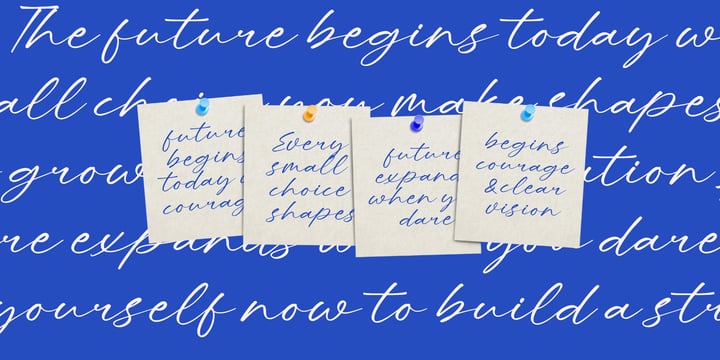 The future begins today w
all ch you make shapes
grow ution
re expands you dare
yourself now to build a str
future
begins
today
courag
Every
small
choice
shapes
future
expand
when y
dare
begins
courage
& clear
vision